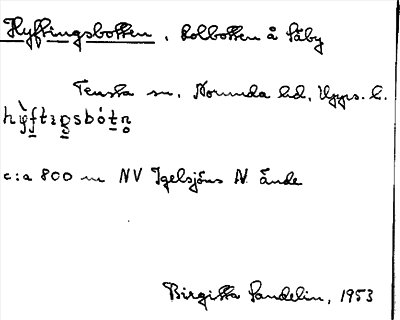 Hyftingsbotten, Kolbotten å Säby
Tensta sn, Norunda hd, Upps. l.
hy̆̀ftɪŋsbót̠n̥
c:a 800 m NV Igelsjöns N. Ände
Birgitta Sandelin, 1953